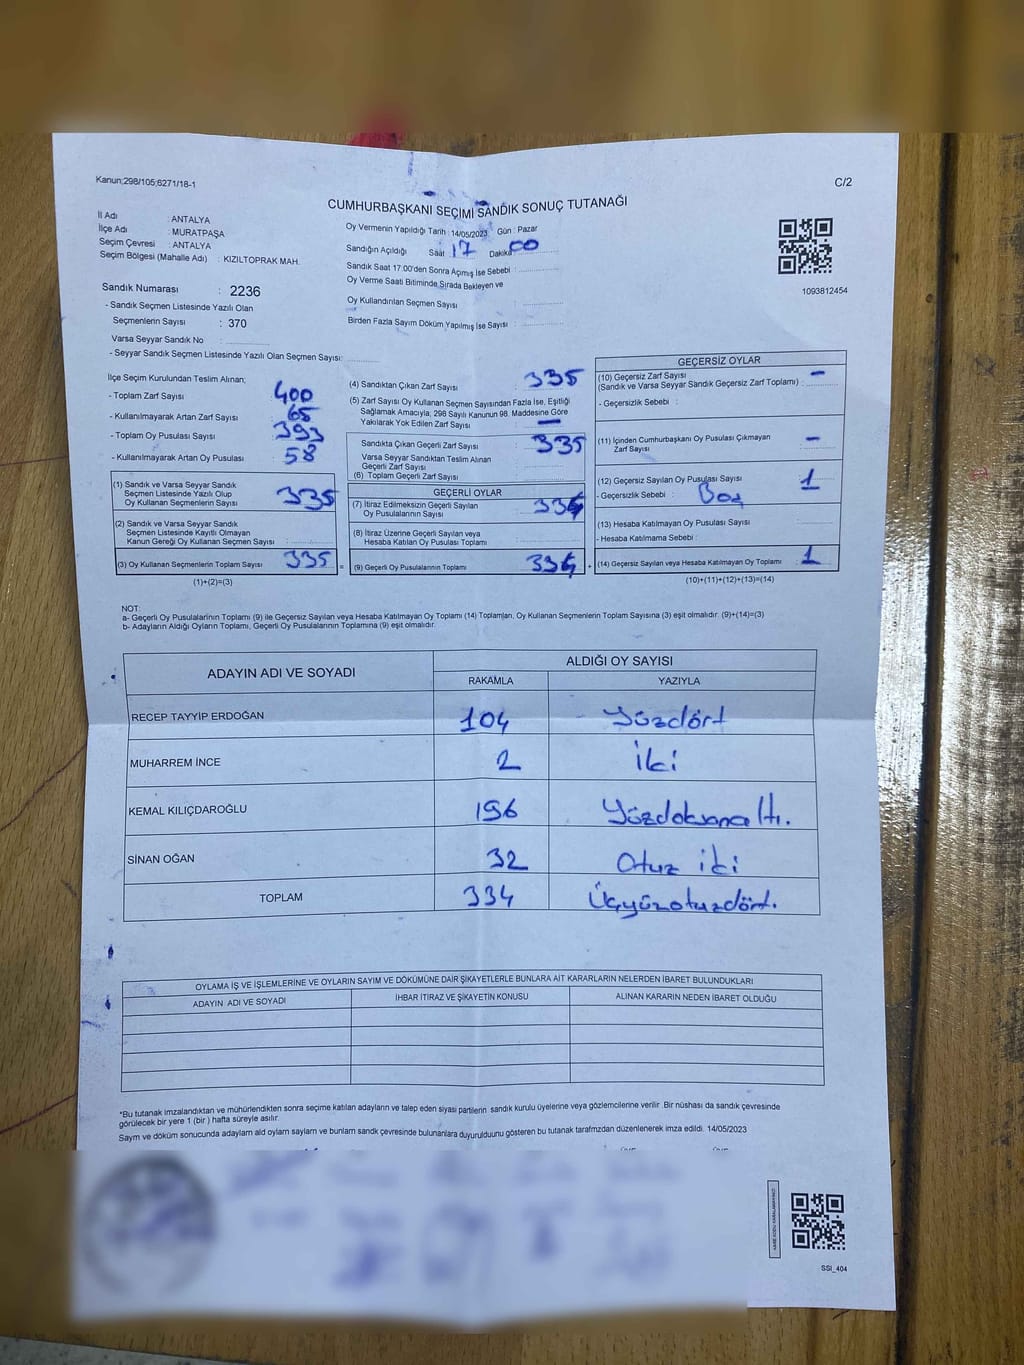 Kanun;298/105;6271/18-1
C/2
CUMHURBAŞKANI SEÇİMİ SANDIK SONUÇ TUTANAĞI
İl Adı : ANTALYA
İlçe Adı : MURATPAŞA
Seçim Çevresi : ANTALYA
Seçim Bölgesi (Mahalle Adı) : KIZILTOPRAK MAH.
Sandık Numarası : 2236
- Sandık Seçmen Listesinde Yazılı Olan
Seçmenlerin Sayısı : 370
Varsa Seyyar Sandık No :
- Seyyar Sandık Seçmen Listesinde Yazılı Olan Seçmen Sayısı:
Oy Vermenin Yapıldığı Tarih : 14/05/2023 Gün : Pazar
Sandığın Açıldığı Saat 17 Dakika 00
Sandık Saat 17:00'den Sonra Açımış İse Sebebi :
Oy Verme Saati Bitiminde Sırada Bekleyen ve
Oy Kullandırılan Seçmen Sayısı :
Birden Fazla Sayım Döküm Yapılmış İse Sayısı :
1093812454
İlçe Seçim Kurulundan Teslim Alınan;
- Toplam Zarf Sayısı : 400
- Kullanılmayarak Artan Zarf Sayısı : 65
- Toplam Oy Pusulası Sayısı : 393
- Kullanılmayarak Artan Oy Pusulası : 58
(1) Sandık ve Varsa Seyyar Sandık
Seçmen Listesinde Yazılı Olup
Oy Kullanan Seçmenlerin Sayısı : 335
(2) Sandık ve Varsa Seyyar Sandık
Seçmen Listesinde Kayıtlı Olmayan
Kanun Gereği Oy Kullanan Seçmen Sayısı :
(3) Oy Kullanan Seçmenlerin Toplam Sayısı : 335 =
(1)+(2)=(3)
(4) Sandıktan Çıkan Zarf Sayısı : 335
(5) Zarf Sayısı Oy Kullanan Seçmen Sayısından Fazla İse, Eşitliği
Sağlamak Amacıyla, 298 Sayılı Kanunun 98. Maddesine Göre
Yakılarak Yok Edilen Zarf Sayısı : —
Sandıkta Çıkan Geçerli Zarf Sayısı : 335
Varsa Seyyar Sandıktan Teslim Alınan
Geçerli Zarf Sayısı
(6) Toplam Geçerli Zarf Sayısı :
GEÇERLİ OYLAR
(7) İtiraz Edilmeksizin Geçerli Sayılan
Oy Pusulalarının Sayısı : 334
(8) İtiraz Üzerine Geçerli Sayılan veya
Hesaba Katılan Oy Pusulası Toplamı :
(9) Geçerli Oy Pusulalarının Toplamı : 334 +
GEÇERSİZ OYLAR
(10) Geçersiz Zarf Sayısı —
(Sandık ve Varsa Seyyar Sandık Geçersiz Zarf Toplamı) :
- Geçersizlik Sebebi :
(11) İçinden Cumhurbaşkanı Oy Pusulası Çıkmayan —
Zarf Sayısı
(12) Geçersiz Sayılan Oy Pusulası Sayısı : 1
- Geçersizlik Sebebi : Boş
(13) Hesaba Katılmayan Oy Pusulası Sayısı
- Hesaba Katılmama Sebebi :
(14) Geçersiz Sayılan veya Hesaba Katılmayan Oy Toplamı : 1
(10)+(11)+(12)+(13)=(14)
NOT:
a- Geçerli Oy Pusulalarının Toplamı (9) ile Geçersiz Sayılan veya Hesaba Katılmayan Oy Toplamı (14) Toplamları, Oy Kullanan Seçmenlerin Toplam Sayısına (3) eşit olmalıdır. (9)+(14)=(3)
b- Adayların Aldığı Oyların Toplamı, Geçerli Oy Pusulalarının Toplamına (9) eşit olmalıdır.
ADAYIN ADI VE SOYADI
ALDIĞI OY SAYISI
RAKAMLA YAZIYLA
RECEP TAYYİP ERDOĞAN 104 Yüzdört
MUHARREM İNCE 2 İki
KEMAL KILIÇDAROĞLU 196 Yüzdoksanaltı.
SİNAN OĞAN 32 Otuz iki
TOPLAM 334 Üçyüzotuzdört.
OYLAMA İŞ VE İŞLEMLERİNE VE OYLARIN SAYIM VE DÖKÜMÜNE DAİR ŞİKAYETLERLE BUNLARA AİT KARARLARIN NELERDEN İBARET BULUNDUKLARI
ADAYIN ADI VE SOYADI İHBAR İTİRAZ VE ŞİKAYETİN KONUSU ALINAN KARARIN NEDEN İBARET OLDUĞU
*Bu tutanak imzalandıktan ve mühürlendikten sonra seçime katılan adayların ve talep eden siyasi partilerin sandık kurulu üyelerine veya gözlemcilerine verilir. Bir nüshası da sandık çevresinde
görülecek bir yere 1 (bir) hafta süreyle asılır.
Sayım ve döküm sonucunda adayların ald oyların sayların ve bunların sandk çevresinde bulunanlara duyurulduunu gösteren bu tutanak tarafmzdan düzenlenerek imza edildi. 14/05/2023
SSI_404